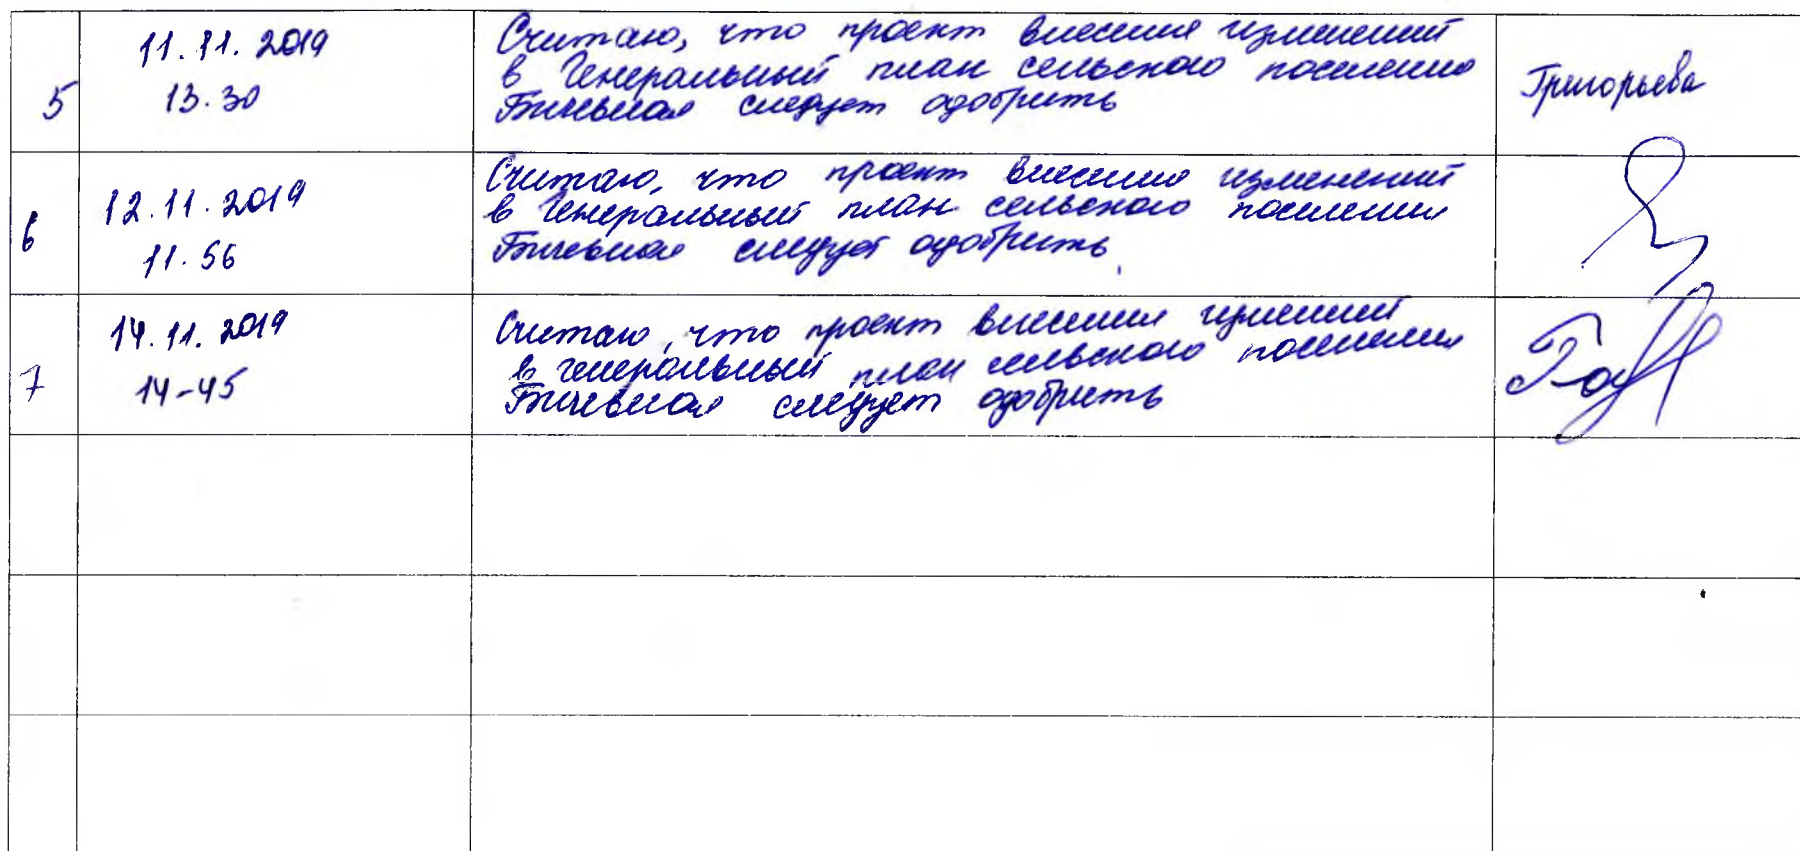 5
11.11.2019
13.30
Считаю, что проект внесения изменений
в Генеральный план сельского поселения
следует одобрить
Григорьева
6
12.11.2019
11.56
Считаю, что проект внесения изменений
в Генеральный план сельского поселения
следует одобрить
7
14.11.2019
14-45
Считаю, что проект внесения изменений
в генеральный план сельского поселения
следует одобрить